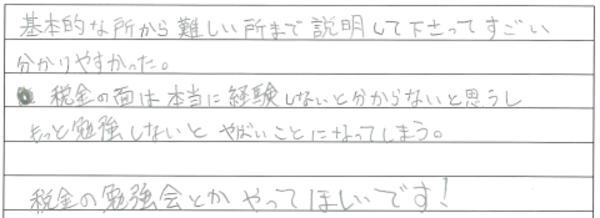 基本的な所から難しい所まで説明して下さってすごい
分かりやすかった。
税金の面は本当に経験しないと分からないと思うし
もっと勉強しないとやばいことになってしまう。
税金の勉強会とかやってほしいです!